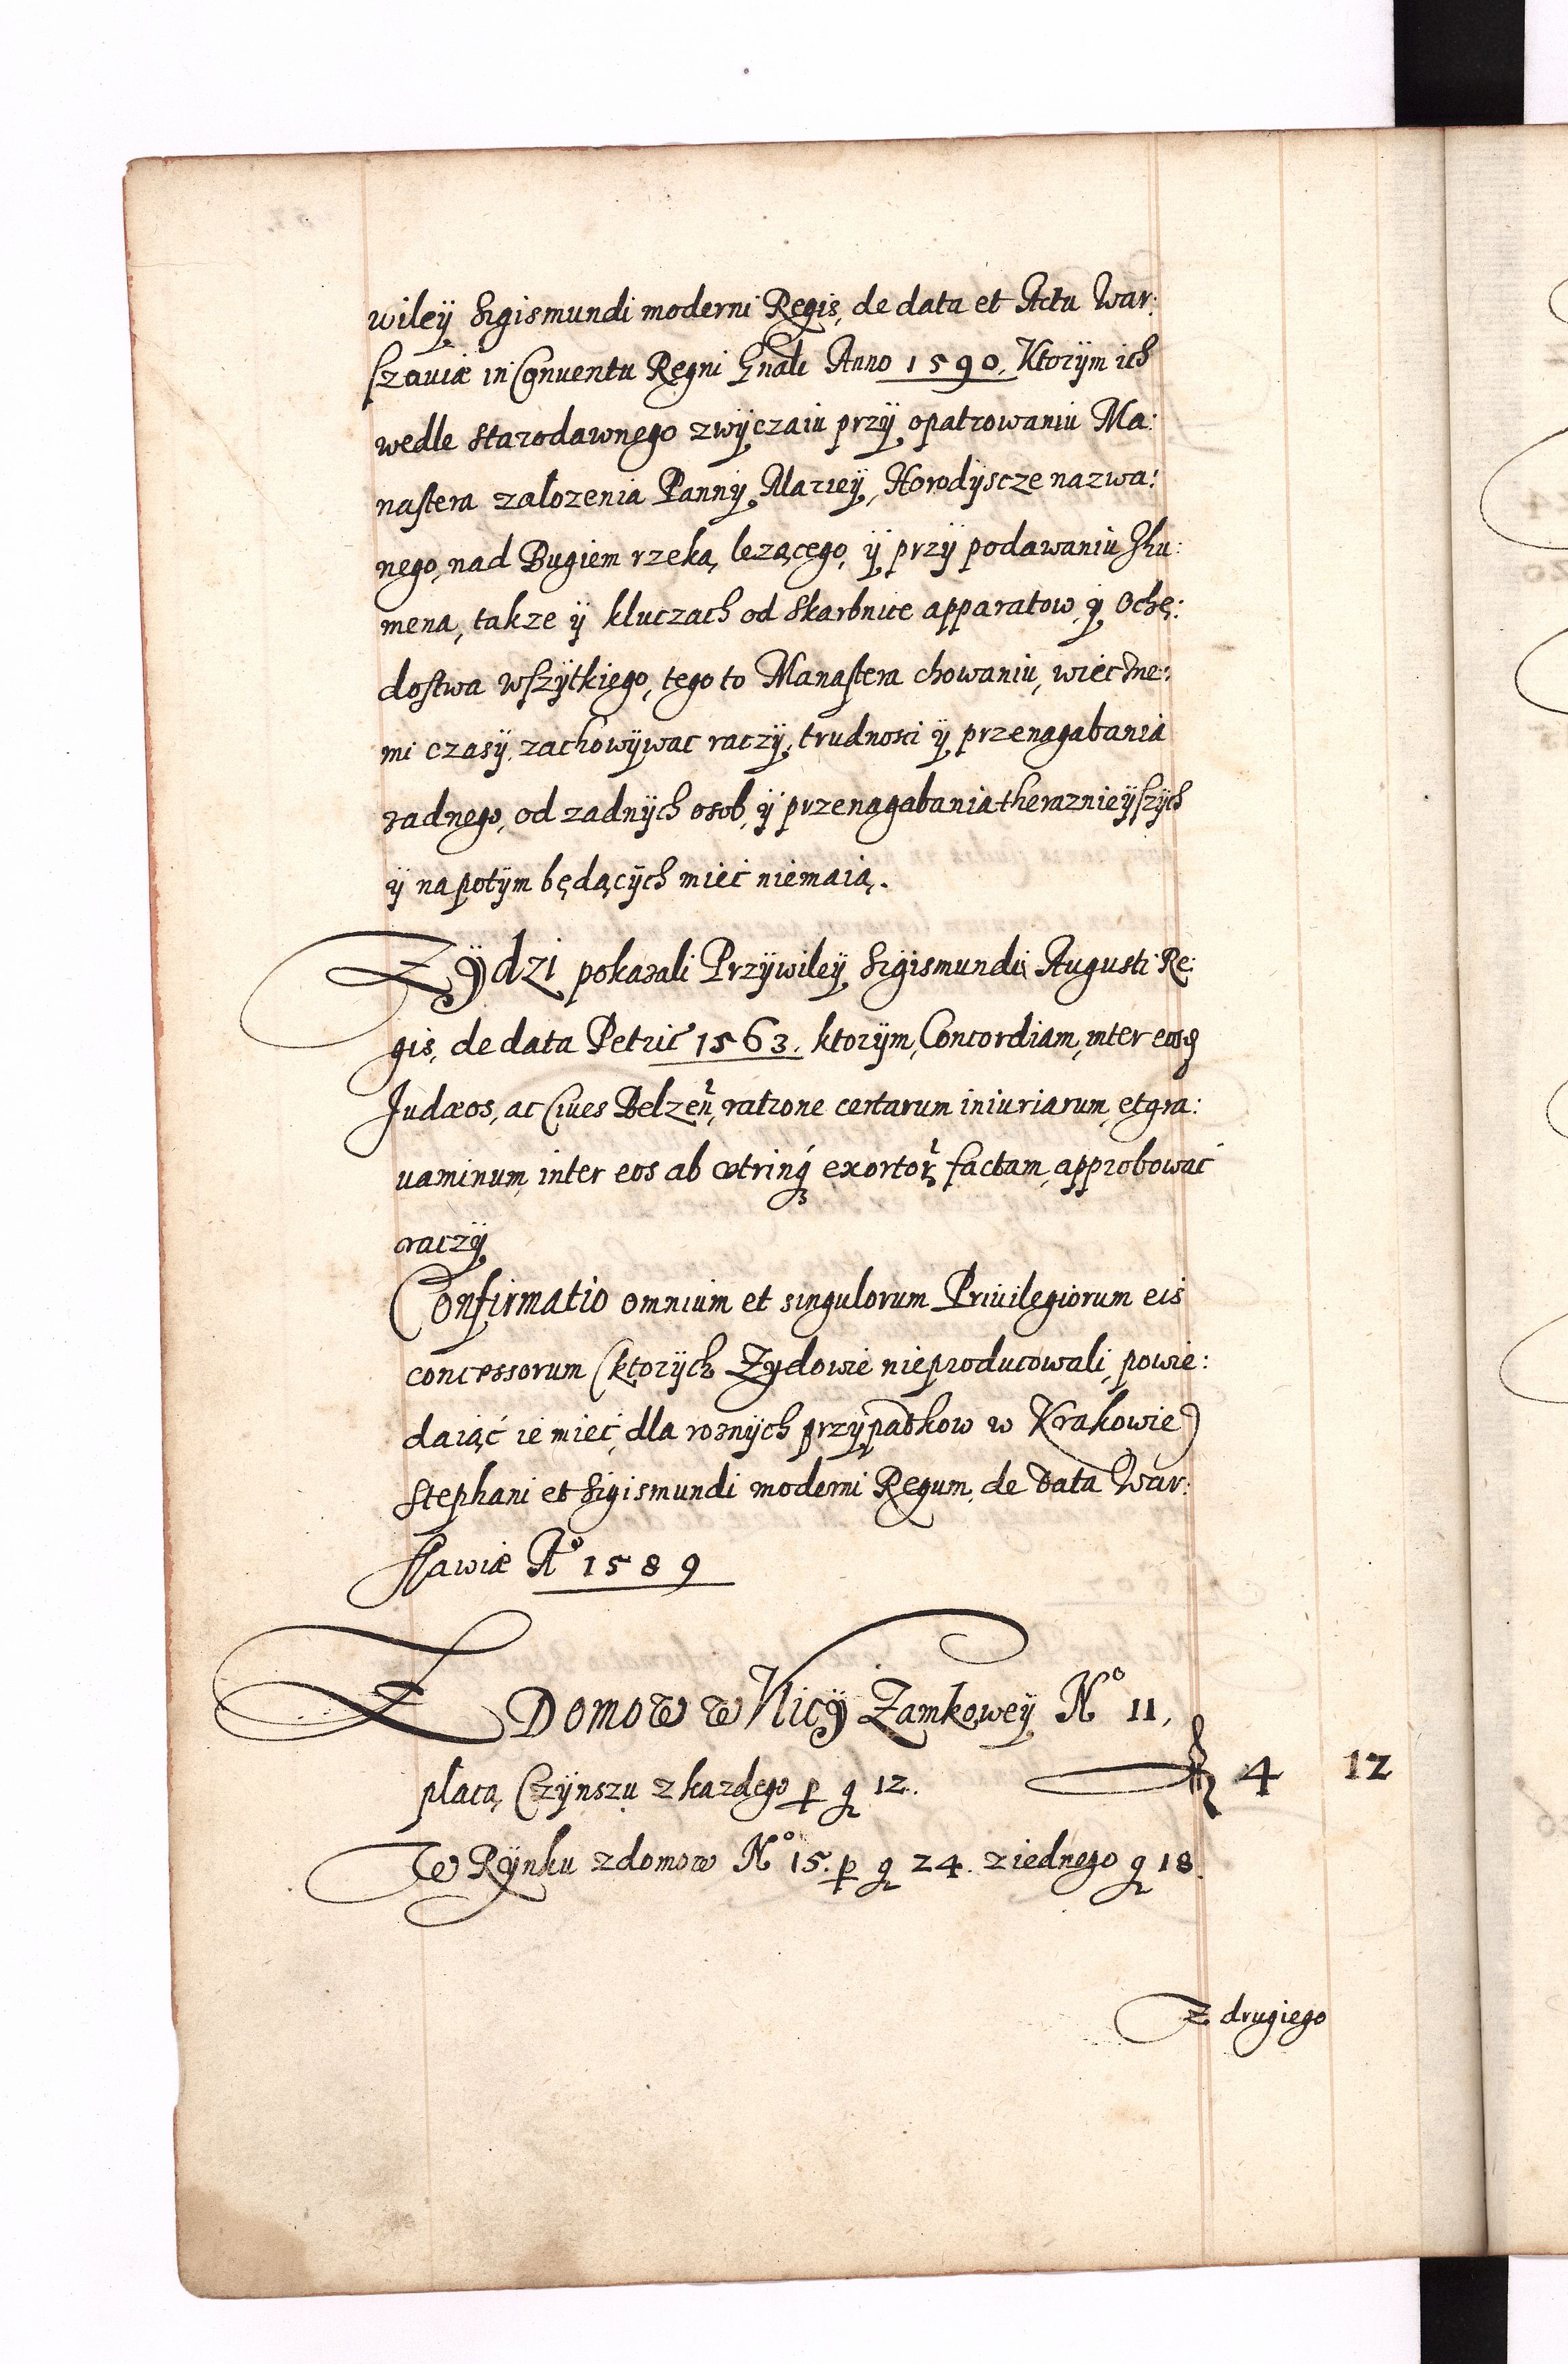 wileÿ Sigismundi moderni Regis, de data et Actu War:
szauiæ in Conuentu Regni Gnali Anno 1590. Ktorÿm ich
wedle starodawnego zwÿczaiu przÿ opatrowaniu Ma:
nastera zalozenia Pannÿ Marieÿ, Horodÿscze nazwa:
nego, nad Bugiem rzeką lezącego, ÿ przÿ podawaniu Jhu:
mena, takze ÿ kluczach od Skarbnice apparatow ÿ Ochę:
dostwa wszÿtkiego, tego to Manastera chowaniu, wieczne:
mi czasÿ zachowÿwac raczÿ, trudnosci ÿ przenagabania
zadnego, od zadnÿch osob, ÿ przenagabania theraznieÿszÿch
ÿ napotÿm będącÿch mieć niemaią.
Zÿdzi pokazali Przÿwileÿ Sigismundi Augusti Re:
gis, de data Petric 1563. ktorÿm, Concordiam, inter eosq
Judæos, ac Ciues Belzen, ratione certarum iniuriarum, et gra:
uaminum, inter eos ab vtrinq exortor factam, approbować
raczÿ
Confirmatio omnium et singulorum Priuilegiorum eis
concessorum (ktorÿch Zydowie nieproducowali, powie:
daiąć ie mieć, dla roznÿch przÿpadkow w Krakowie)
Stephani et Sigismundi moderni Regum, de data War:
ssawiæ Aº 1589
Z Domow w Vlicÿ Zamkoweÿ Nº 11,
placą Czÿnszu z kazdego p g 12. f 4 12
W Rÿnku z domow Nº 15. p g 24. z iednego g 18.
Z drugiego